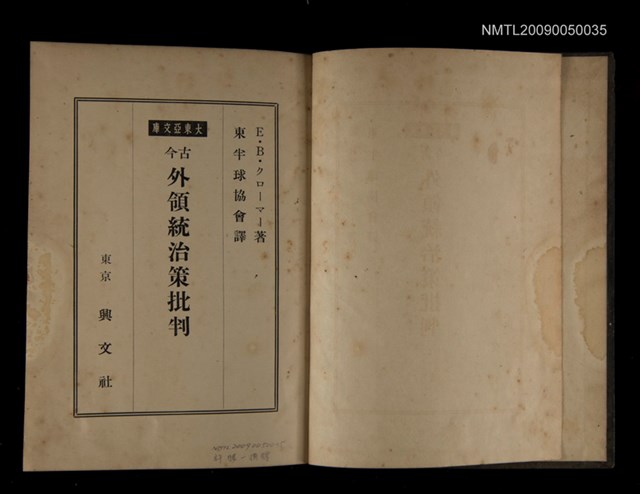 NMTL20090050035
E・B・クローマー著
東半球協會譯
大東亞文庫
古今
外領統治策批判
東京 興文社